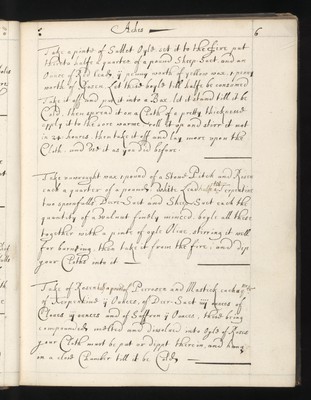 Aches 6
Take a pinte of Sallet Oyle set it to the fire put
thereto halfe a quarter of a pound Sheep Suet, and an
Ounce of Red Lead, ij penny worth of yellow wax, 1 penny
worth of Rosin. Let these boyle till halfe be consumed
Take it off and put it into a Box, let it stand till it be
Cold, then spread it on a Cloth of a pretty thicknesse
apply it to the sore warme roll it up and sturr it not
in 24 howers, then take it off and lay more upon the
Cloth, and Use it as you did before.
Take
pound of a Stone Pitch and Rosin
each a quarter of a pound, white Lead
two spoonfulls Deer-Suet and Sheep Suet each the
quantity of a walnut finely minced, boyle all these
together with a pinte of oyle Olive stirring it well
for burning, then take it from the fire, and dip
your Cloths into it
Take of Rosin
Perrosin and Mastick each
of
ij Ounces, of Deer-Suet iiij ounces of
Cloves ij ounces and of Saffron ij Ounces, these being
melted and
into oyle of Roses
your Cloth must be put or dipt therein, and hung
on a close Chamber till it be Cold,